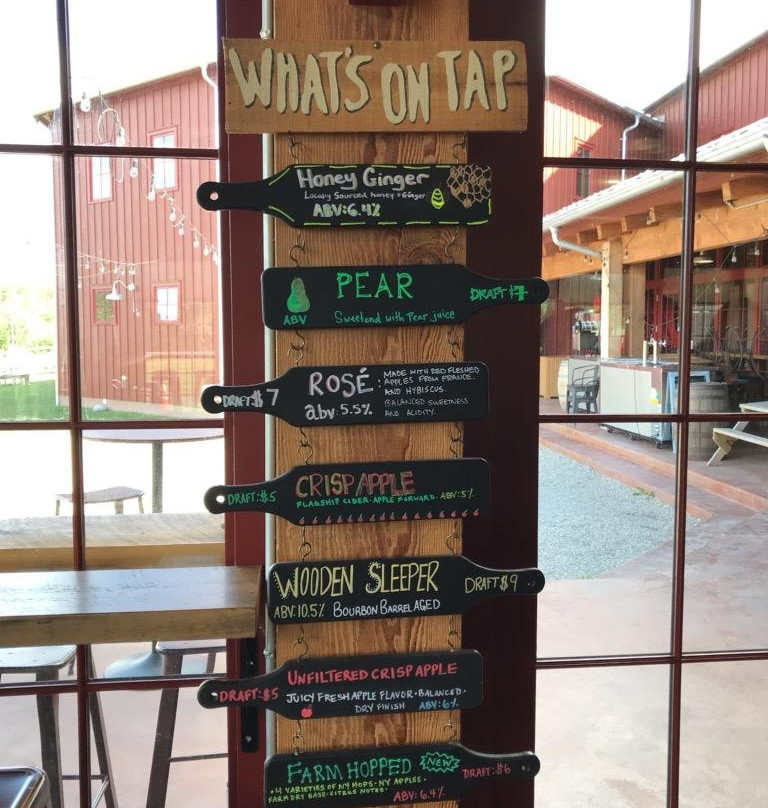 WHAT'S ON TAP
Honey Ginger
Locally Sourced honey + Ginger
ABV: 6.4%
PEAR
DRAFT $7
ABV
Sweetend with Pear juice
DRAFT $ 7
ROSÉ
abv: 5.5%
: MADE WITH RED FLESHED
APPLES FROM FRANCE.
AND HYBISCUS.
BALANCED SWEETNESS
AND ACIDITY.
DRAFT: $5
CRISP APPLE
FLAGSHIP CIDER. APPLE FORWARD. ABV: 5%
WOODEN SLEEPER
DRAFT $9
ABV: 10.5% BOURBON BARREL AGED
DRAFT: $5
UNFILTERED CRISP APPLE
JUICY FRESH APPLE FLAVOR • BALANCED •
DRY FINISH ABV: 6%
FARM HOPPED NEW
DRAFT: $6
• 4 VARIETIES OF NY HOPS • NY APPLES •
FARM DRY BASE • CITRUS NOTES •
ABV: 6.4%